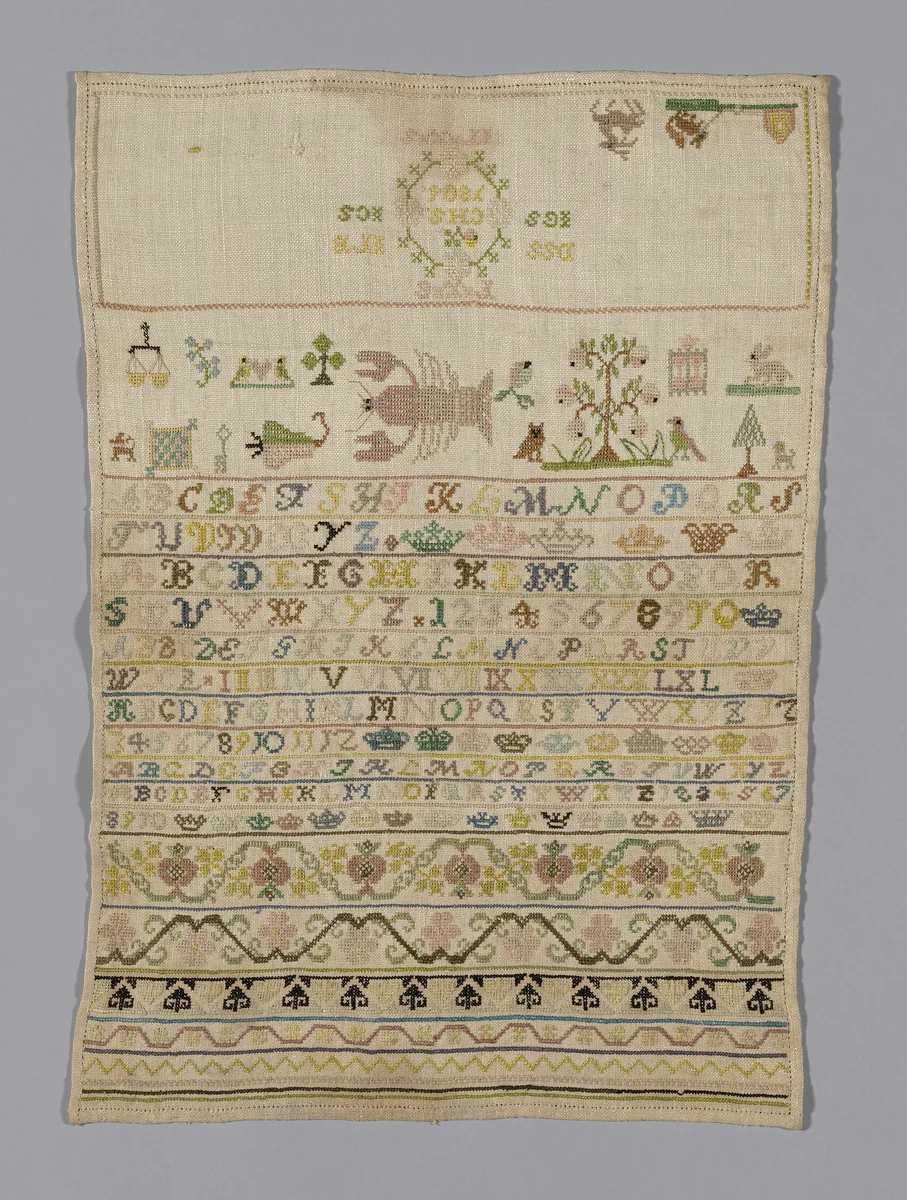 1804
CHS
IGS IGS
DSS ILE
A B C D E F S H I K L M N O P Q R S
T U V W X Y Z
A B C D E F G H I K L M N O P Q R
S T U V W X Y Z 1 2 3 4 5 6 7 8 9 10
A B C D E F G H I K L M N O P Q R S T U V
W X Z I II III IV V VI VII VIII IX X XX XXX LXL
A B C D E F G H I K L M N O P Q R S T V W X Y Z 1 2
3 4 5 6 7 8 9 10 11 12
A B C D E F G H I K L M N O P Q R S T U W X Y Z
A B C D E F G H I K L M N O P Q R S T V W X Y Z 1 2 3 4 5 6 7
8 9 10